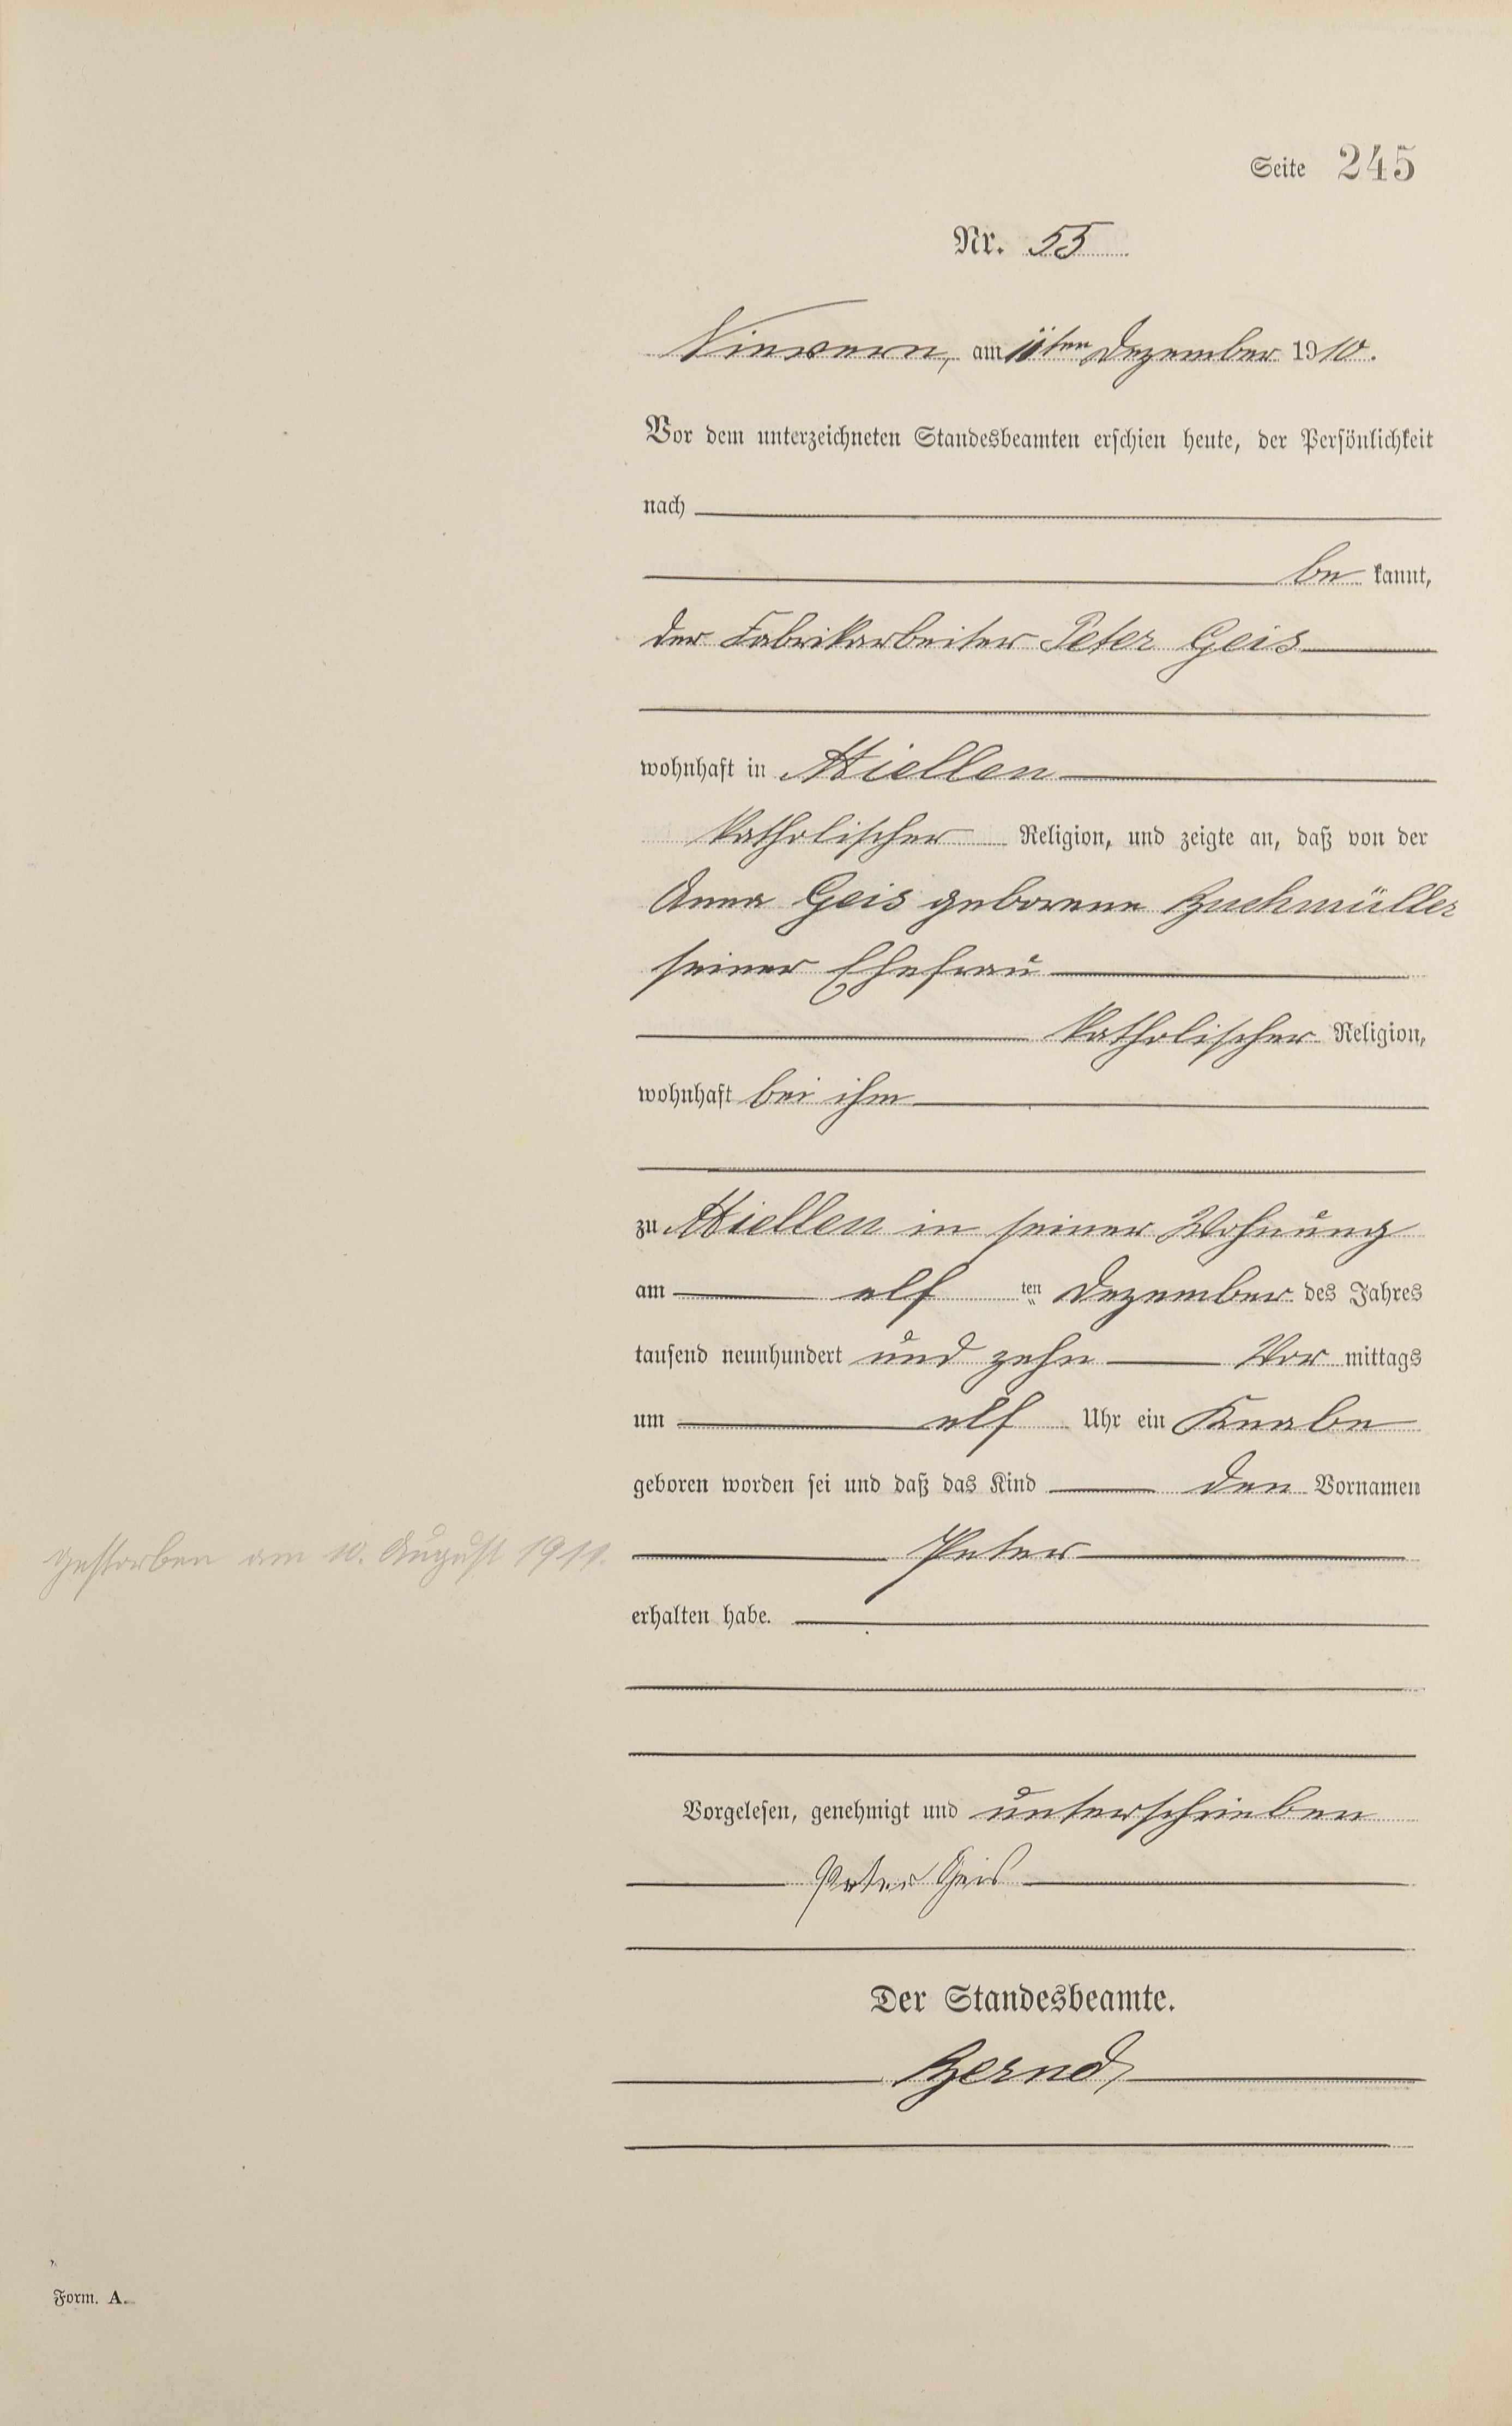 Seite 245
Nr. 55
Nievern, am ten Dezember 1910.
Vor dem unterzeichneten Standesbeamten erschien heute, der Persönlichkeit
nach
be kannt,
der Fabrikarbeiter Peter Geis
wohnhaft in Miellen
katholischer Religion, und zeigte an, daß von der
Anna Geis geborene Buchmüller
seiner Ehefrau
katholischer Religion,
wohnhaft bei ihm
zu Miellen in seiner Wohnung
am elf ten Dezember des Jahres
tausend neunhundert und zehn Vor mittags
um elf Uhr ein Knabe
geboren worden sei und daß das Kind den Vornamen
gestorben am 10. August 1911.
Peter
erhalten habe.
Vorgelesen, genehmigt und unterschrieben
Peter Geis
Der Standesbeamte.
Bernd
Form. A.